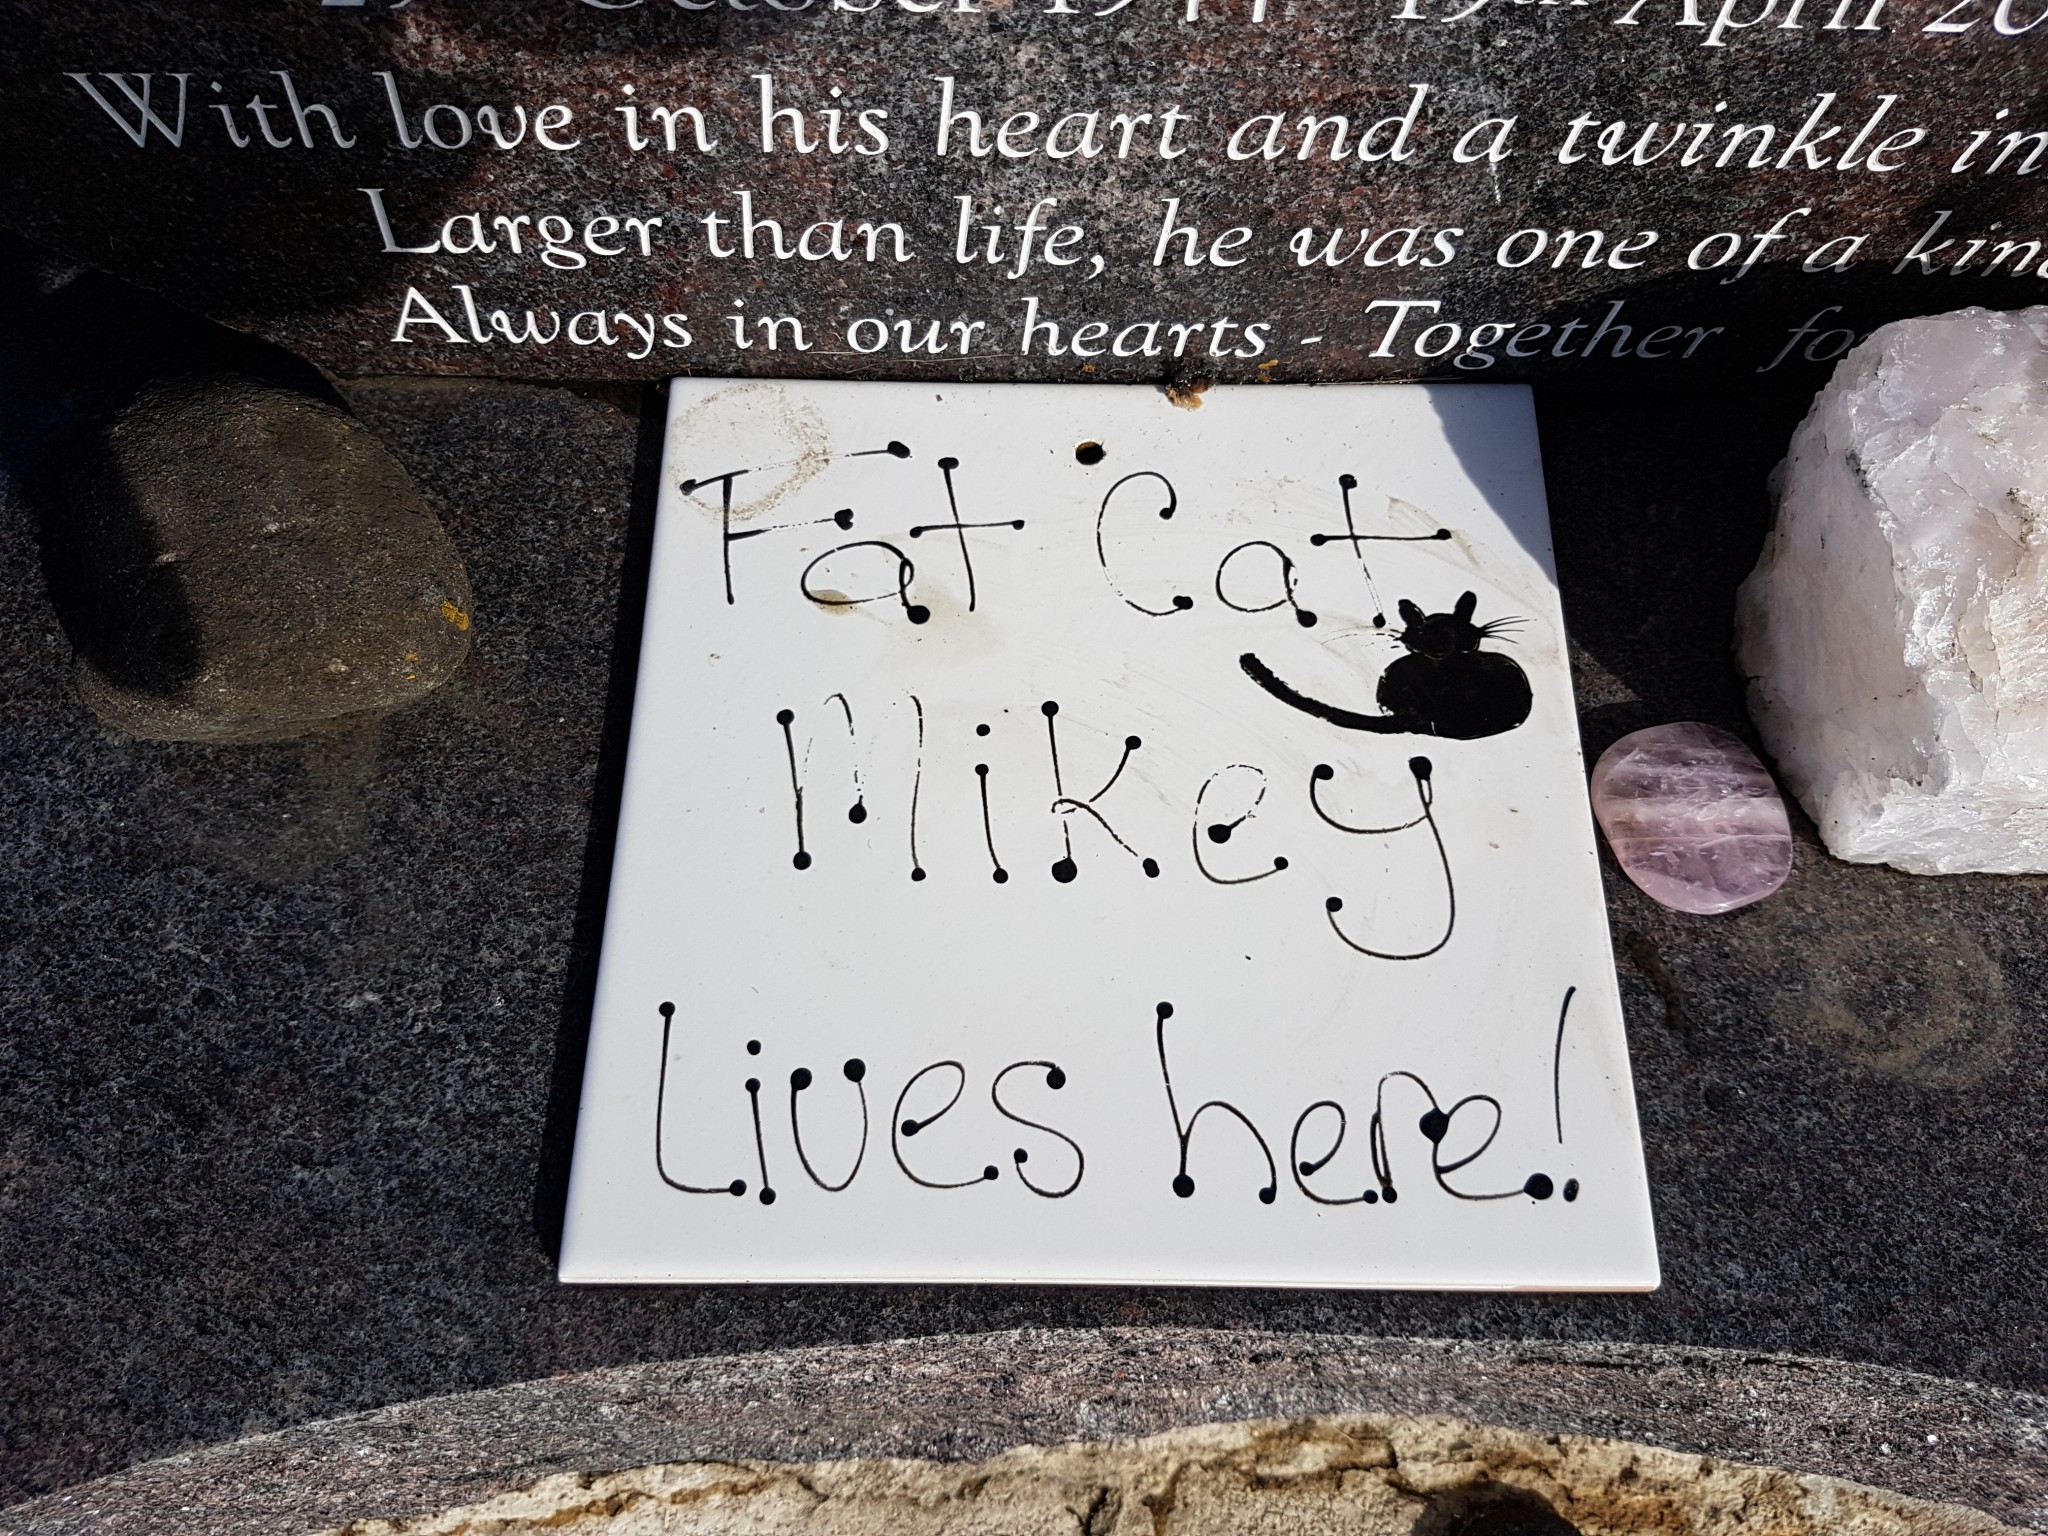 October 19 19th April 20
With love in his heart and a twinkle in
Larger than life, he was one of a kin
Always in our hearts - Together fo
Fat Cat
Mikey
Lives here!